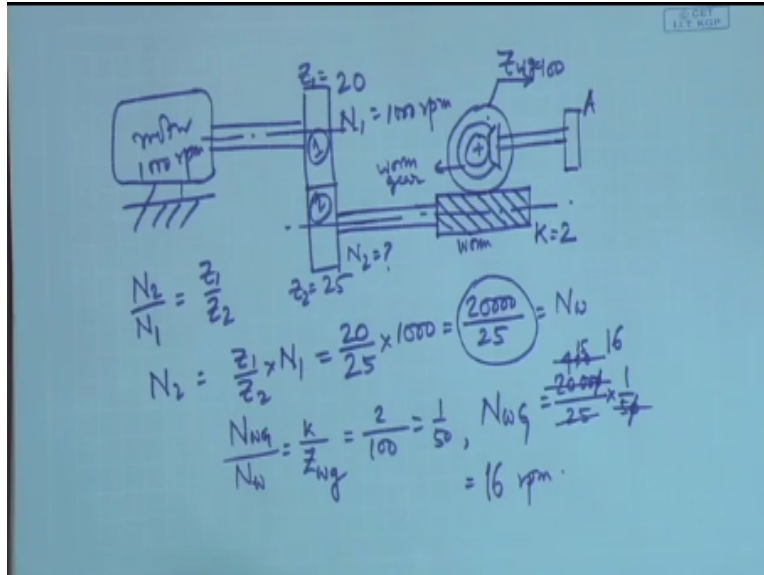 © CET
I.I.T. KGP
Z₁=20
Z_wg=100
motor
1000 rpm
N₁ = 1000 rpm
A
1
worm
gear
2
worm
K=2
N₂=?
Z₂=25
N₂/N₁ = Z₁/Z₂
N₂ = Z₁/Z₂ × N₁ = 20/25 × 1000 = 20000/25 = N_W
16
N_WG/N_W = K/Z_wg = 2/100 = 1/50 , N_WG = 20000/25 × 1/50
= 16 rpm.